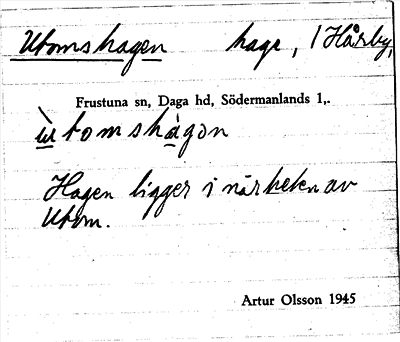 Utomshagen hage, 1 Hårby,
Frustuna sn, Daga hd, Södermanlands l,.
ùtomshàgən
Hagen ligger i närheten av
Utom.
Artur Olsson 1945